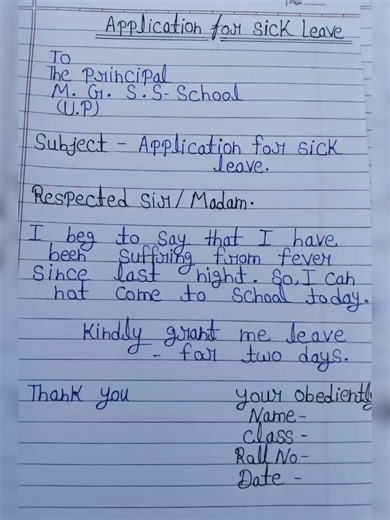 Application for Sick Leave
To
The Principal
M. Gr. S. S- School
(U.P)
Subject - Application for sick
leave.
Respected Sir/Madam.
I beg to say that I have
been suffring from fever
since last night. So, I can
not come to school today.
Kindly grant me leave
- for two days.
Thank you
your obediently
Name-
Class -
Roll No-
Date -